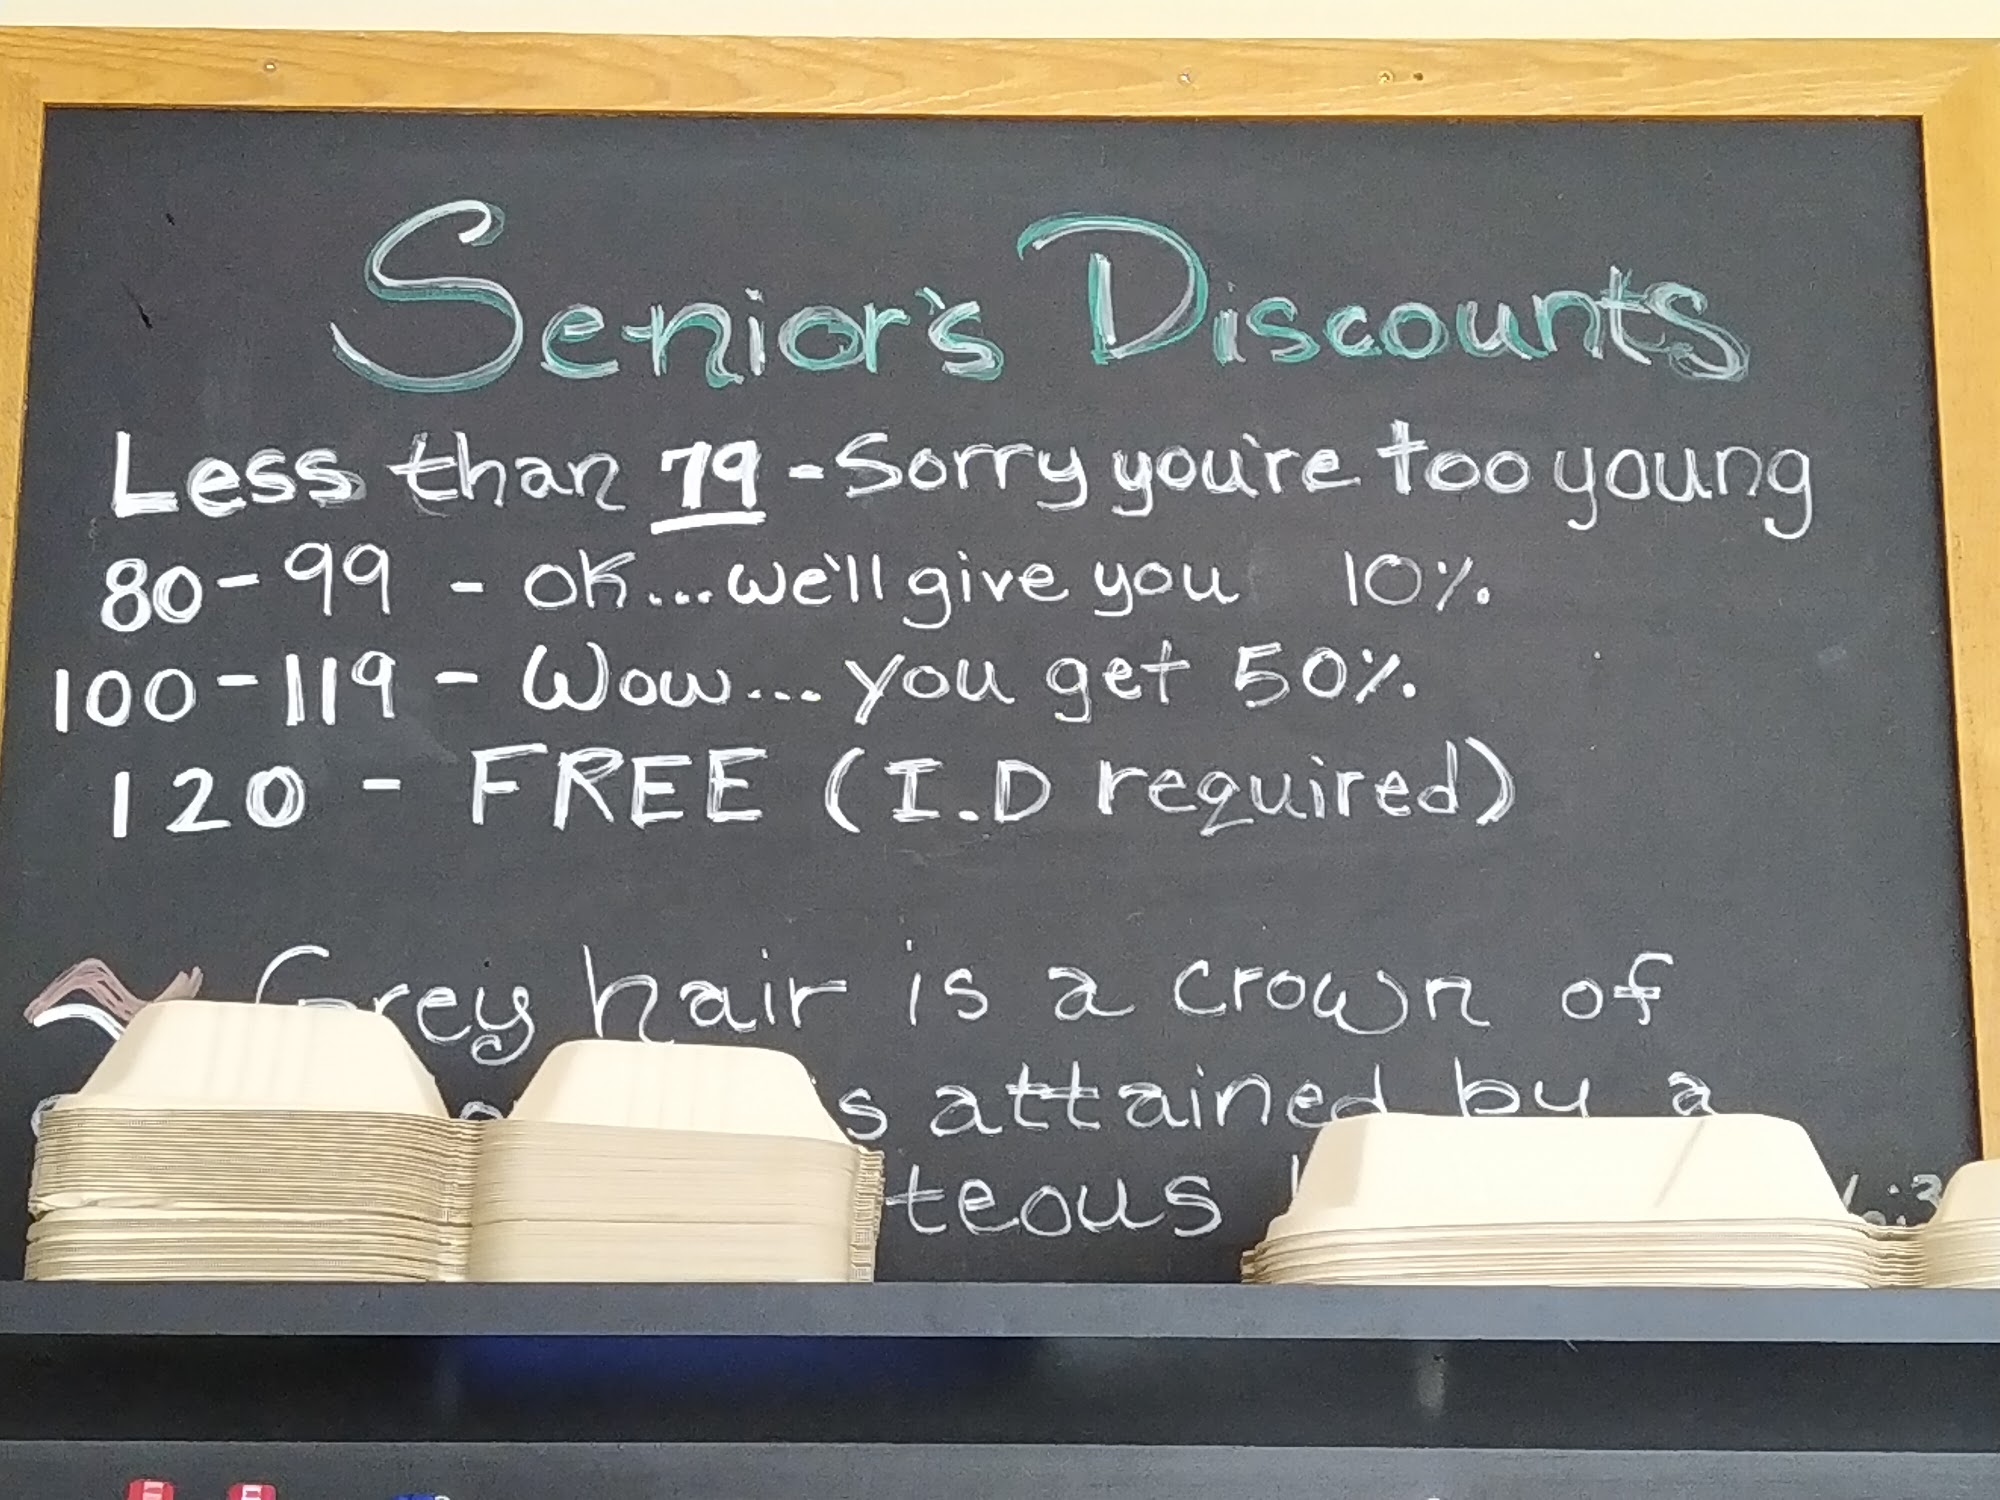 Senior's Discounts
Less than 79 - Sorry you're too young
80-99 - OK...we'll give you 10%
100-119 - Wow... you get 50%
120 - FREE (I.D required)
Grey hair is a crown of
attained by a